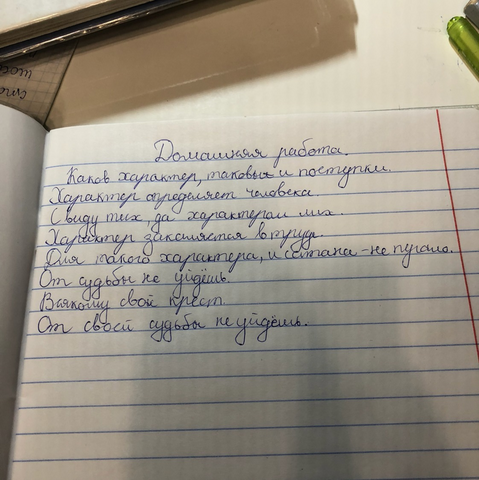 Домашняя работа.
Каков характер, таковы и поступки.
Характер определяет человека
С виду тих, да характером лих.
Характер закаляется в труде.
Для такого характера, и сатана - не пугало.
От судьбы не уйдёшь.
Всякому свой крест.
От своей судьбы не уйдёшь.